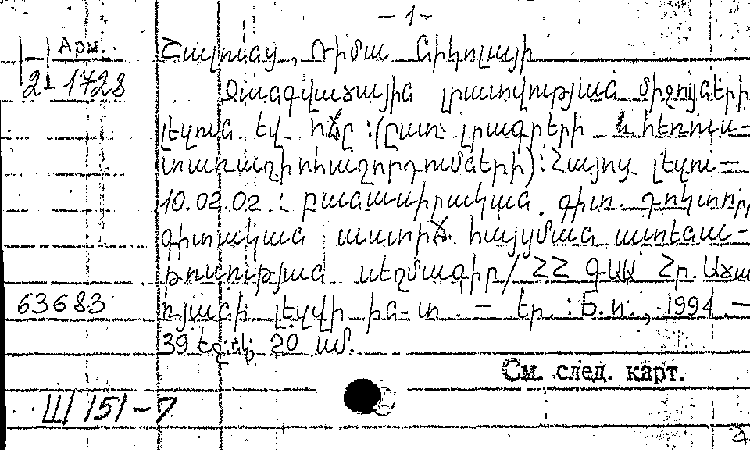 - 1 -
Арм. Շալունց, Ռիմա Նիկոլայի
2-1723 Զանգվածային լրատվության միջոցների
լեզուն եվ ոճը :(ըստ լրագրերի և հեռուս-
տառադիոհաղորդումների): Հայոց լեզու -
10.02.02 : բանասիրական. գիտ. դոկտոր
գիտական աստիճ. հայցման ատենա-
խոսության սեղմագիր/ ՀՀ ԳԱԱ Հր. Աճա
63683 ռյանի լեզվի ին-տ. - Եր. : Б.и., 1994 -
39 էջ; 20 սմ.
См. след. карт.
Ш 151-7